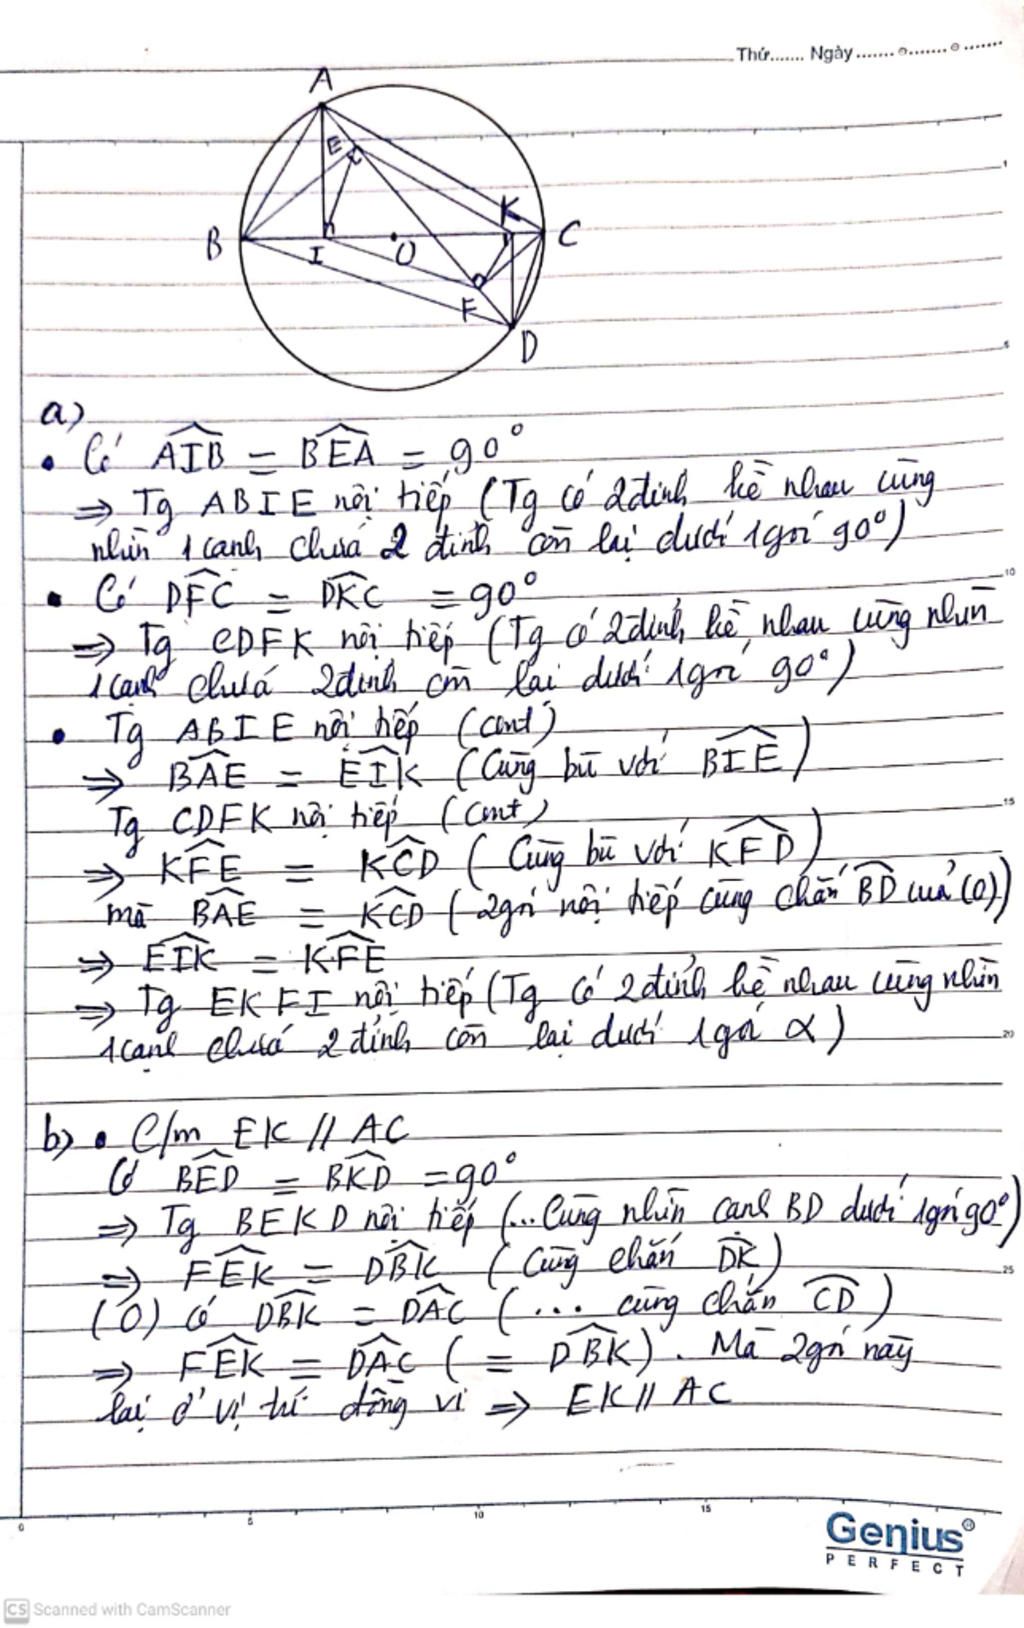 Thứ....... Ngày ....... ....... .......
A
E
K
B
C
I
O
F
D
a)
• Có AIB = BEA = 90°
⇒ Tg ABIE nội tiếp (Tg có 2 đỉnh kề nhau cùng
nhìn 1 cạnh chứa 2 đỉnh còn lại dưới 1 góc 90°)
• Có DFC = DKC = 90°
⇒ Tg CDFK nội tiếp (Tg có 2 đỉnh kề nhau cùng nhìn
1 cạnh chứa 2 đỉnh còn lại dưới 1 góc 90°)
• Tg ABIE nội tiếp (cmt)
⇒ BAE = EIK (Cùng bù với BIE)
Tg CDFK nội tiếp (cmt)
⇒ KFE = KCD (Cùng bù với KFD)
mà BAE = KCD (2 góc nội tiếp cùng chắn BD của (O))
⇒ EIK = KFE
⇒ Tg EKFI nội tiếp (Tg có 2 đỉnh kề nhau cùng nhìn
1 cạnh chứa 2 đỉnh còn lại dưới 1 góc α)
b) • C/m EK // AC
Có BED = BKD = 90°
⇒ Tg BEKD nội tiếp (... Cùng nhìn cạnh BD dưới 1 góc 90°)
⇒ FEK = DBK (Cùng chắn DK)
(O) có DBK = DAC (... cùng chắn CD)
⇒ FEK = DAC (= DBK). Mà 2 góc này
lại ở vị trí đồng vị ⇒ EK // AC
0 5 10 15
1
5
10
15
20
25
Genius®
PERFECT
CS Scanned with CamScanner